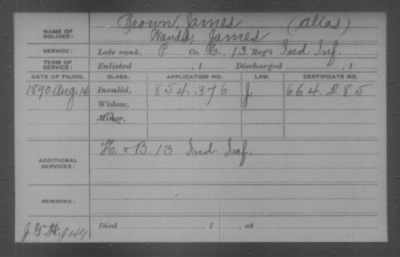 NAME OF SOLDIER: Brown, James (alias)
James
SERVICE: Late rank, P Co. H, 13 Reg't Ind. Inf.
TERM OF SERVICE: Enlisted , 1 Discharged , 1
DATE OF FILING. CLASS. APPLICATION NO. LAW. CERTIFICATE NO.
1890 Aug. 14 Invalid, 854.376 J. 664.285
Widow,
Minor,
ADDITIONAL SERVICES: H. & B. 13 Ind Inf.
REMARKS:
Died , 1 , at